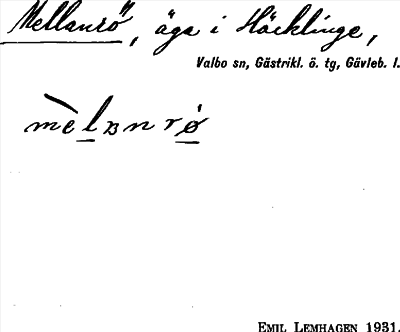 Mellanrö, äga i Häcklinge,
Valbo sn, Gästrikl. ö. tg, Gävleb. l.
mèlanrö́
EMIL LEMHAGEN 1931.